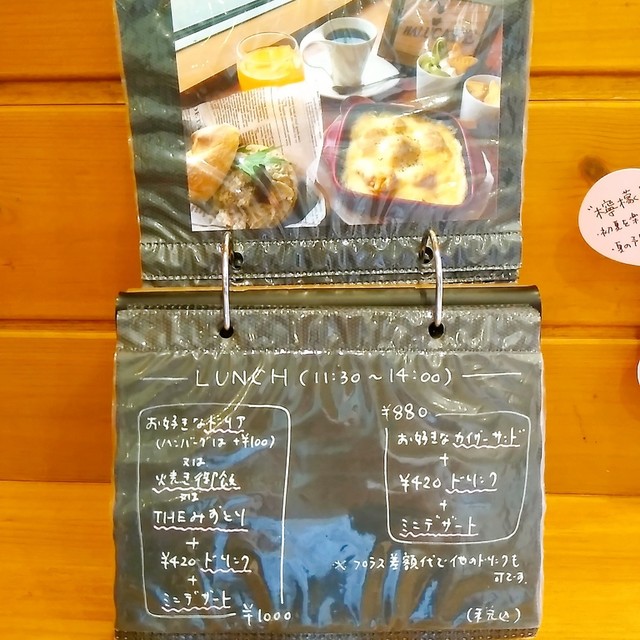 LUNCH (11:30～14:00)
お好きなドリア
(ハンバーグは+¥100)
又は
焼き
又は
THEみどり
+
¥420 ドリンク
+
ミニデザート
¥1000
¥880
お好きなカイザーサンド
+
¥420 ドリンク
+
ミニデザート
※プラス差額代で他のドリンクも
可です。
(税込)
檸檬
初夏を
夏の